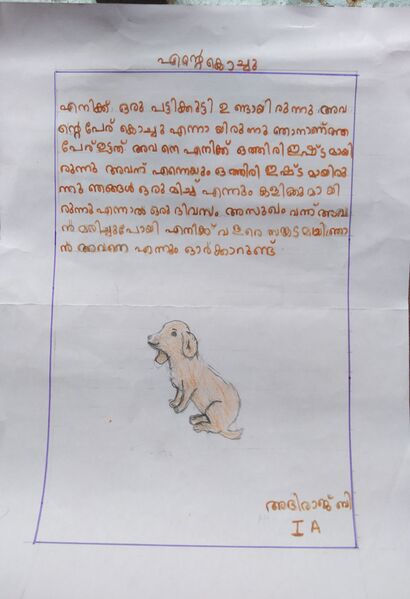 എന്റെ കൊച്ചു
എനിക്ക് ഒരു പട്ടിക്കുട്ടി ഉണ്ടായിരുന്നു അവ
ന്റെ പേര് കൊച്ചു എന്നായിരുന്നു ഞാനാണ്അ
പേര് ഇട്ടത് അവനെ എനിക്ക് ഒത്തിരി ഇഷ്ട്ടമായി
രുന്നു അവന് എന്നെയും ഒത്തിരി ഇഷ്ട്ടമായിരു
ന്നു ഞങ്ങൾ ഒരുമിച്ച് എന്നും കളിക്കുമായി
രുന്നു എന്നാൽ ഒരു ദിവസം അസുഖം വന്ന് അവ
ൻ മരിച്ചുപോയി എനിക്ക് വളരെ സങ്കടമായിഞാ
ൻ അവനെ എന്നും ഓർക്കാറുണ്ട്
അഭിരാജ് ബി
I A